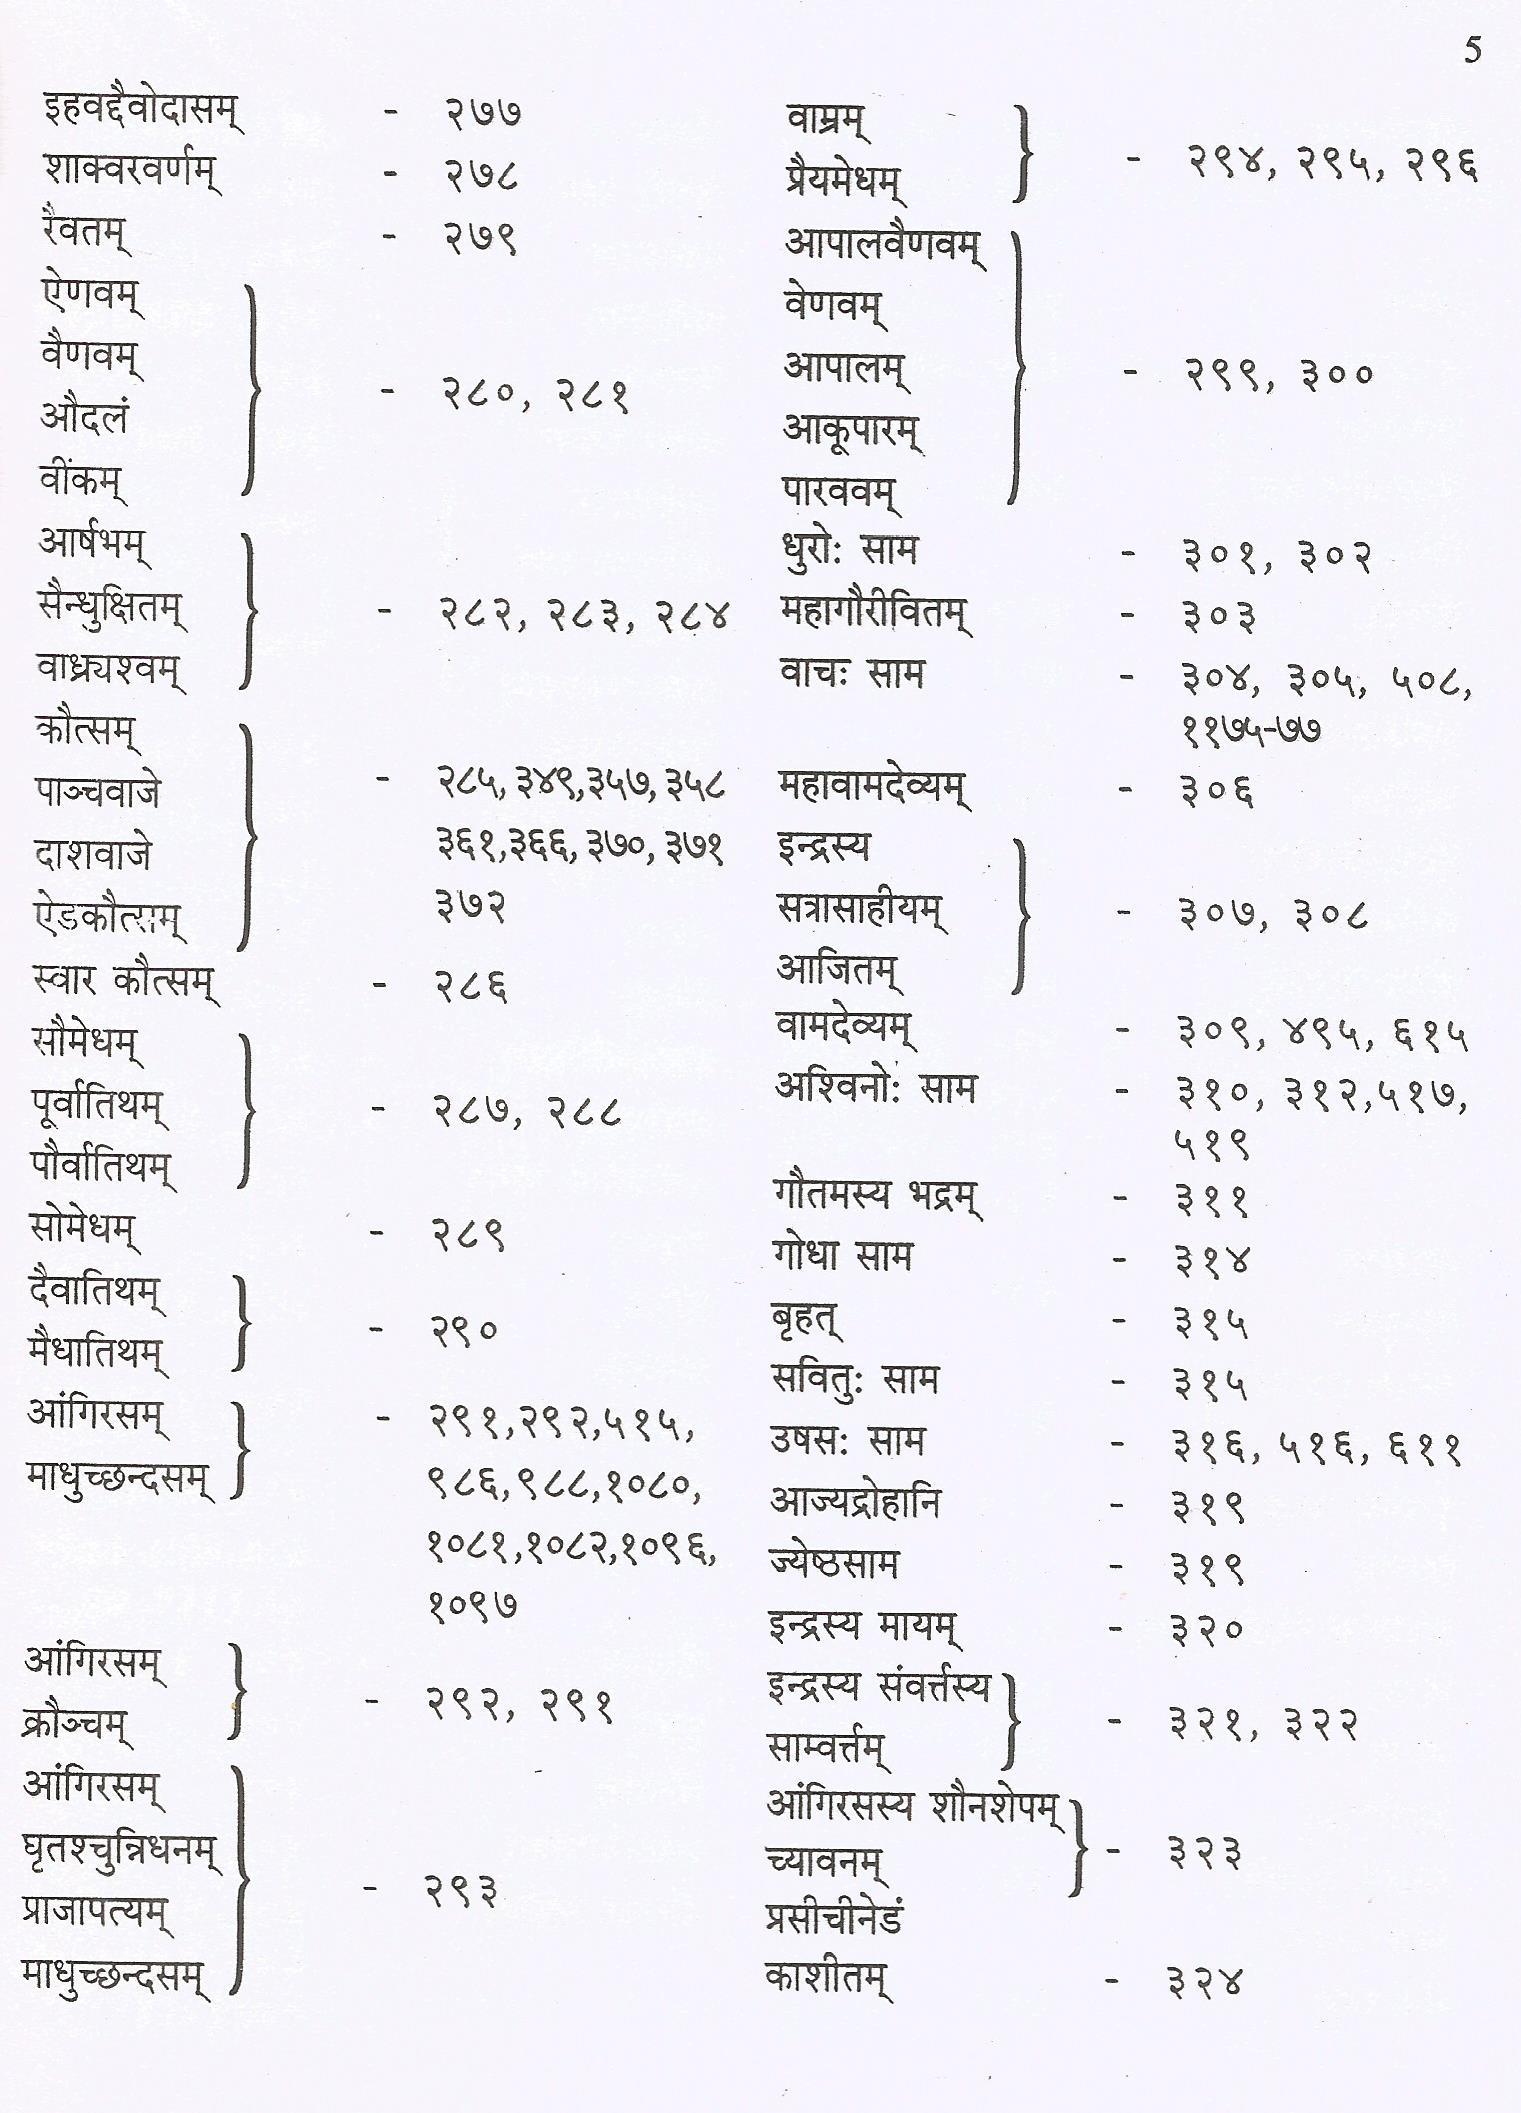 5
इहवद्दैवोदासम् - २७७
शाक्वरवर्णम् - २७८
रैवतम् - २७९
ऐणवम्
वैणवम्
औदलं
वींकम्
- २८०, २८१
आर्षभम्
सैन्धुक्षितम्
वाध्र्यश्वम्
- २८२, २८३, २८४
क्रौत्सम्
पाञ्चवाजे
दाशवाजे
ऐडकौत्सम्
- २८५, ३४९,३५७, ३५८
३६१,३६६, ३७०, ३७१
३७२
स्वार कौत्सम् - २८६
सौमेधम्
पूर्वातिथम्
पौर्वातिथम्
- २८७, २८८
सोमेधम् - २८९
दैवातिथम्
मैधातिथम्
- २९०
आंगिरसम्
माधुच्छन्दसम्
- २९१,२९२,५१५,
९८६,९८८,१०८०,
१०८१,१०८२,१०९६,
१०९७
आंगिरसम्
क्रौञ्चम्
- २९२, २९१
आंगिरसम्
घृतश्चुन्निधनम्
प्राजापत्यम्
माधुच्छन्दसम्
- २९३
वाम्रम्
प्रैयमेधम्
- २९४, २९५, २९६
आपालवैणवम्
वेणवम्
आपालम्
आकूपारम्
पारववम्
- २९९, ३००
धुरोः साम - ३०१, ३०२
महागौरीवितम् - ३०३
वाचः साम - ३०४, ३०५, ५०८,
११७५-७७
महावामदेव्यम् - ३०६
इन्द्रस्य
सत्रासाहीयम्
आजितम्
- ३०७, ३०८
वामदेव्यम् - ३०९, ४९५, ६१५
अश्विनोः साम - ३१०, ३१२,५१७,
५१९
गौतमस्य भद्रम् - ३११
गोधा साम - ३१४
बृहत् - ३१५
सवितुः साम - ३१५
उषसः साम - ३१६, ५१६, ६११
आज्यद्रोहानि - ३१९
ज्येष्ठसाम - ३१९
इन्द्रस्य मायम् - ३२०
इन्द्रस्य संवर्त्तस्य
साम्वर्त्तम्
- ३२१, ३२२
आंगिरसस्य शौनशेपम्
च्यावनम्
- ३२३
प्रसीचीनेडं
काशीतम् - ३२४